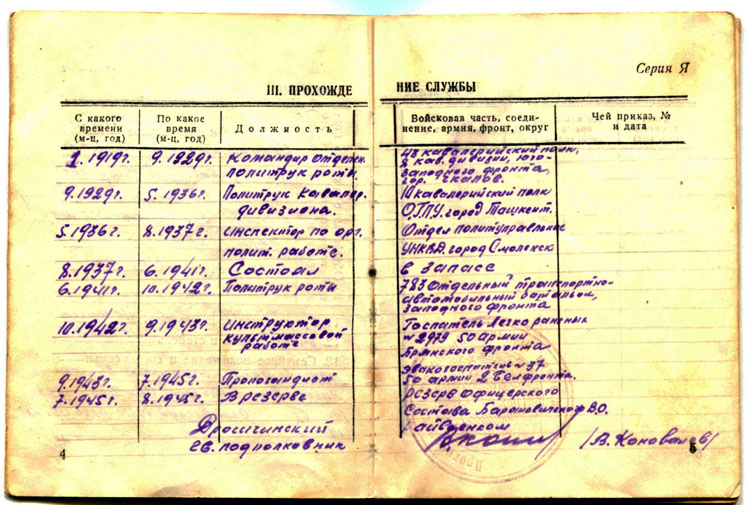 Серия Я
III. ПРОХОЖДЕ НИЕ СЛУЖБЫ
С какого времени (м-ц, год) По какое время (м-ц, год) Должность Войсковая часть, соеди-нение, армия, фронт, округ Чей приказ, № и дата
1.1919г. 9.1929г. Командир отделен. 48 кавалерийский полк,
политрук роты 8 кав. дивизии, Юго-
Западного фронта,
гор.
9.1929г. 5.1936г. Политрук кавалер. 10 кавалерийский полк
дивизиона. ОГПУ. город Ташкент.
5.1936г. 8.1937г. Инспектор по орг. Отдел политуправление
полит. работе. УНКВД. город Смоленск
8.1937г. 6.1941г. Состоял в запасе
6.1941г. 10.1942г. Политрук роты 783 отдельный транспортно-
автомобильный батальон,
Западного фронта
10.1942г. 9.1943г. Инструктор Госпиталь легко раненых
культмассовой № 2979 50 армии
работе Брянского фронта
эвакогоспиталь № 37
9.1943г. 7.1945г. Пропогандист 50 армии 2 Белфронта.
7.1945г. 8.1945г. В резерве резерв офицерского
состава Барановитского В.О.
Дрогичинский райвоенком
гв. подполковник /В. Коновалов/
4 5